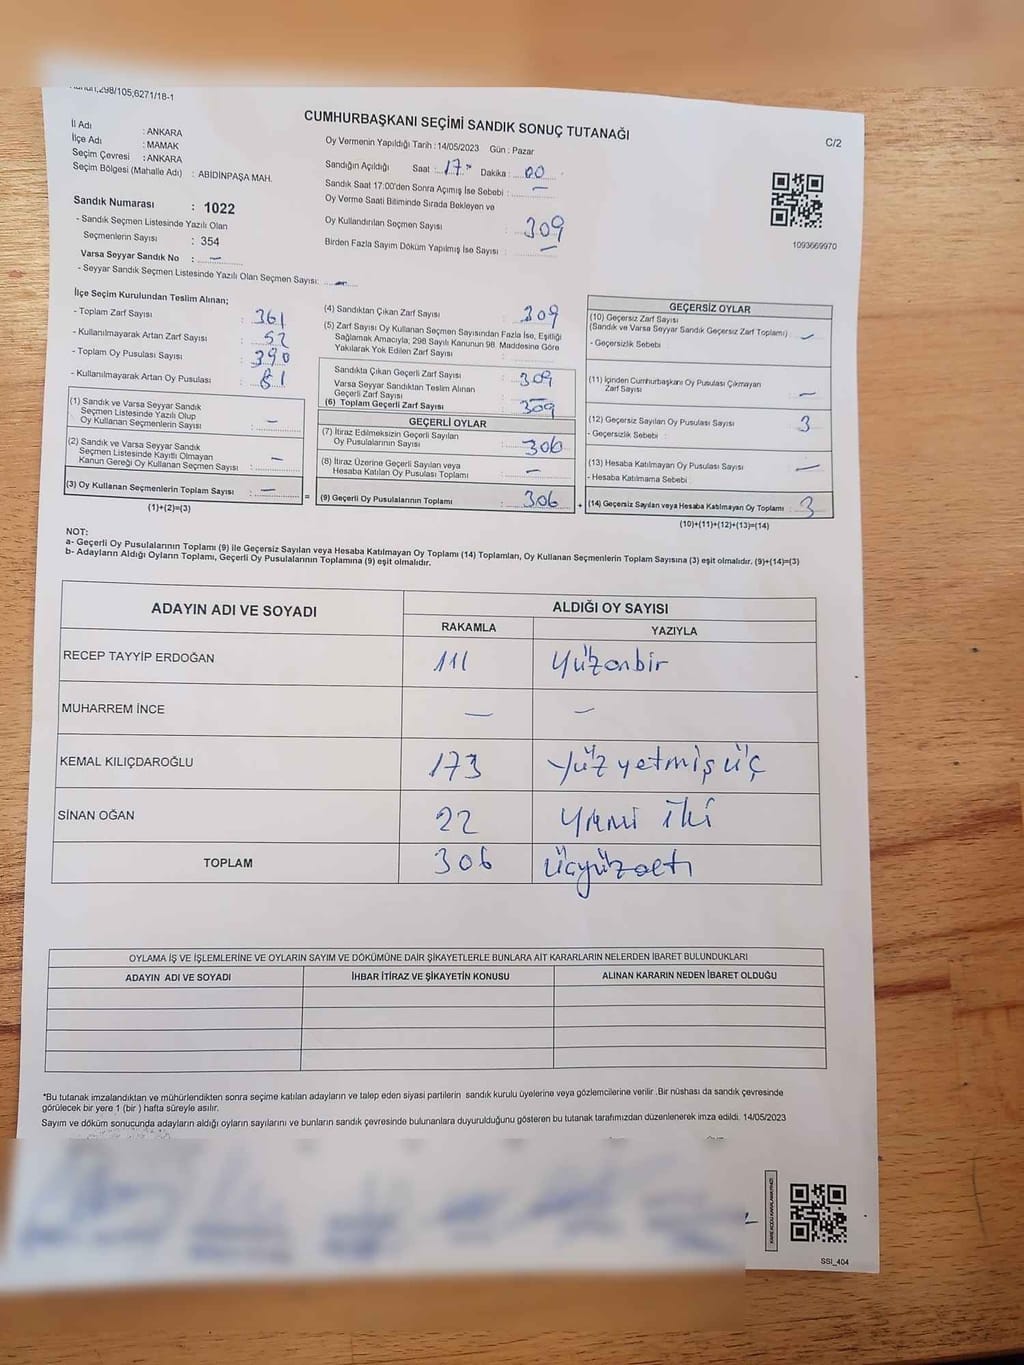 298/105,6271/18-1
CUMHURBAŞKANI SEÇİMİ SANDIK SONUÇ TUTANAĞI
C/2
İl Adı : ANKARA
İlçe Adı : MAMAK
Seçim Çevresi : ANKARA
Seçim Bölgesi (Mahalle Adı) : ABİDİNPAŞA MAH.
Oy Vermenin Yapıldığı Tarih : 14/05/2023 Gün : Pazar
Sandığın Açıldığı Saat : 17 Dakika : 00
Sandık Saat 17:00'den Sonra Açımış İse Sebebi : —
Oy Verme Saati Bitiminde Sırada Bekleyen ve
Oy Kullandırılan Seçmen Sayısı : 309
Birden Fazla Sayım Döküm Yapılmış İse Sayısı : —
1093669970
Sandık Numarası : 1022
- Sandık Seçmen Listesinde Yazılı Olan
Seçmenlerin Sayısı : 354
Varsa Seyyar Sandık No : —
- Seyyar Sandık Seçmen Listesinde Yazılı Olan Seçmen Sayısı: —
İlçe Seçim Kurulundan Teslim Alınan;
- Toplam Zarf Sayısı : 361
- Kullanılmayarak Artan Zarf Sayısı : 52
- Toplam Oy Pusulası Sayısı : 390
- Kullanılmayarak Artan Oy Pusulası : 81
(1) Sandık ve Varsa Seyyar Sandık
Seçmen Listesinde Yazılı Olup
Oy Kullanan Seçmenlerin Sayısı : —
(2) Sandık ve Varsa Seyyar Sandık
Seçmen Listesinde Kayıtlı Olmayan
Kanun Gereği Oy Kullanan Seçmen Sayısı : —
(3) Oy Kullanan Seçmenlerin Toplam Sayısı : —
(1)+(2)=(3)
(4) Sandıktan Çıkan Zarf Sayısı : 309
(5) Zarf Sayısı Oy Kullanan Seçmen Sayısından Fazla İse, Eşitliği
Sağlamak Amacıyla; 298 Sayılı Kanunun 98. Maddesine Göre
Yakılarak Yok Edilen Zarf Sayısı :
Sandıkta Çıkan Geçerli Zarf Sayısı : 309
Varsa Seyyar Sandıktan Teslim Alınan
Geçerli Zarf Sayısı : —
(6) Toplam Geçerli Zarf Sayısı : 309
GEÇERLİ OYLAR
(7) İtiraz Edilmeksizin Geçerli Sayılan
Oy Pusulalarının Sayısı : 306
(8) İtiraz Üzerine Geçerli Sayılan veya
Hesaba Katılan Oy Pusulası Toplamı : —
= (9) Geçerli Oy Pusulalarının Toplamı : 306
GEÇERSİZ OYLAR
(10) Geçersiz Zarf Sayısı
(Sandık ve Varsa Seyyar Sandık Geçersiz Zarf Toplamı) : —
- Geçersizlik Sebebi :
(11) İçinden Cumhurbaşkanı Oy Pusulası Çıkmayan
Zarf Sayısı : —
(12) Geçersiz Sayılan Oy Pusulası Sayısı : 3
- Geçersizlik Sebebi :
(13) Hesaba Katılmayan Oy Pusulası Sayısı : —
- Hesaba Katılmama Sebebi :
+ (14) Geçersiz Sayılan veya Hesaba Katılmayan Oy Toplamı : 3
(10)+(11)+(12)+(13)=(14)
NOT:
a- Geçerli Oy Pusulalarının Toplamı (9) ile Geçersiz Sayılan veya Hesaba Katılmayan Oy Toplamı (14) Toplamları, Oy Kullanan Seçmenlerin Toplam Sayısına (3) eşit olmalıdır. (9)+(14)=(3)
b- Adayların Aldığı Oyların Toplamı, Geçerli Oy Pusulalarının Toplamına (9) eşit olmalıdır.
ADAYIN ADI VE SOYADI
ALDIĞI OY SAYISI
RAKAMLA YAZIYLA
RECEP TAYYİP ERDOĞAN 111 Yüzonbir
MUHARREM İNCE — —
KEMAL KILIÇDAROĞLU 173 Yüz yetmiş üç
SİNAN OĞAN 22 Yirmi iki
TOPLAM 306 Üçyüzaltı
OYLAMA İŞ VE İŞLEMLERİNE VE OYLARIN SAYIM VE DÖKÜMÜNE DAİR ŞİKAYETLERLE BUNLARA AİT KARARLARIN NELERDEN İBARET BULUNDUKLARI
ADAYIN ADI VE SOYADI İHBAR İTİRAZ VE ŞİKAYETİN KONUSU ALINAN KARARIN NEDEN İBARET OLDUĞU
*Bu tutanak imzalandıktan ve mühürlendikten sonra seçime katılan adayların ve talep eden siyasi partilerin sandık kurulu üyelerine veya gözlemcilerine verilir .Bir nüshası da sandık çevresinde
görülecek bir yere 1 (bir ) hafta süreyle asılır.
Sayım ve döküm sonucunda adayların aldığı oyların sayılarını ve bunların sandık çevresinde bulunanlara duyurulduğunu gösteren bu tutanak tarafımızdan düzenlenerek imza edildi. 14/05/2023
KARE KODU KARALAMAYINIZ!
SSI_404